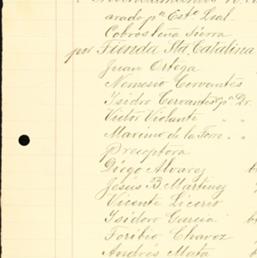 arado pr Esta Lsal.
Cobrostena Sierra
por Tienda Sta. Catalina
Juan Ortega
Nemesio Cervantes
Isidro Cervantes
Victor Violante " "
Maximo de la Torre " "
Preceptora
Diego Alvarez
Jesús B Martinez
Vicente Licerio
Isidoro Garcia
Toribio Chavez
Andrés Mata